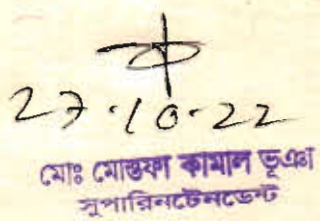 27.10.22
মোঃ মোস্তফা কামাল ভূঞা
সুপারিনটেনডেন্ট